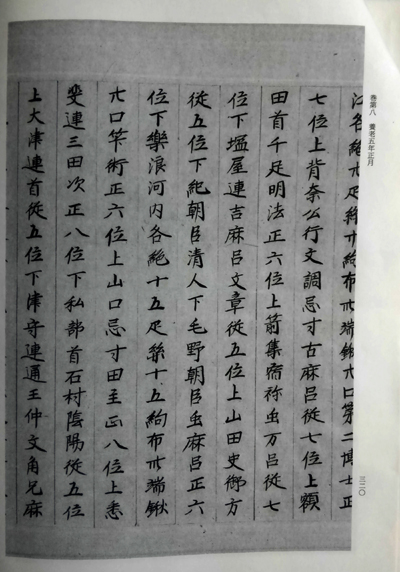 巻第八 養老五年正月
三二〇
江各絁廿疋絲廿絇布卅端鍬廿口第二博士正
七位上背奈公行文調忌寸古麻呂從七位上額
田首千足明法正六位上箭集宿祢虫万呂從七
位下塩屋連吉麻呂文章從五位上山田史御方
從五位下紀朝臣清人下毛野朝臣虫麻呂正六
位下樂浪河内各絁十五疋絲十五絇布卅端鍬
廿口竿術正六位上山口忌寸田主正八位上悉
斐連三田次正八位下私部首石村陰陽從五位
上大津連首從五位下津守連通王仲文角兄麻